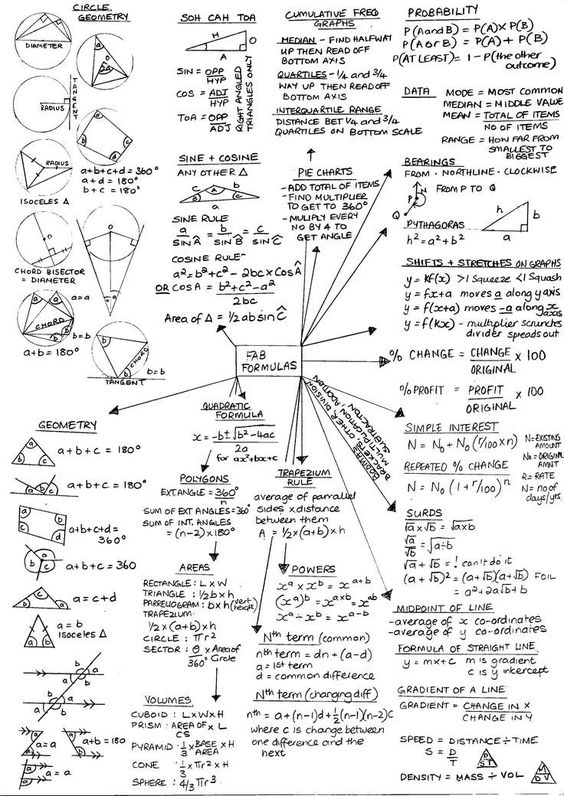 CIRCLE
GEOMETRY
DIAMETER
a
b
TANGENT
RADIUS
a
b
c
d
RADIUS
a+b+c+d = 360°
a+d = 180°
b+c = 180°
ISOCELES Δ
CHORD BISECTOR
= DIAMETER
a=a
CHORD
b=b
a+b = 180°
CHORD
TANGENT
b=b
SOH CAH TOA
H
O
A
SIN = OPP
HYP
COS = ADJ
HYP
TOA = OPP
ADJ
RIGHT ANGLED
TRIANGLES ONLY
SINE + COSINE
ANY OTHER Δ
c A b
a
SINE RULE
a = b = c
SINÂ SINB̂ SINĈ
COSINE RULE
a² = b²+c² - 2bc x CosÂ
OR COSA = b²+c²-a²
2bc
Area of Δ = ½ ab sin Ĉ
CUMULATIVE FREQ
GRAPHS
MEDIAN - FIND HALFWAY
UP THEN READ OFF
BOTTOM AXIS
QUARTILES - ¼ and ¾
WAY UP THEN READ OFF
BOTTOM AXIS
INTERQUARTILE RANGE
DISTANCE BET ¼ and ¾
QUARTILES ON BOTTOM SCALE
PIE CHARTS
- ADD TOTAL OF ITEMS
- FIND MULTIPLIER
TO GET TO 360°
- MULIPLY EVERY
NO BY 4 TO
GET ANGLE
PROBABILITY
P(A and B) = P(A) x P(B)
P(A or B) = P(A) + P(B)
P(AT LEAST) = 1 - P(the other
outcome)
DATA
MODE = MOST COMMON
MEDIAN = MIDDLE VALUE
MEAN = TOTAL OF ITEMS
NO OF ITEMS
RANGE = HOW FAR FROM
SMALLEST TO
BIGGEST
BEARINGS
FROM · NORTHLINE · CLOCKWISE
N
P
Q
FROM P TO Q
PYTHAGORAS
h² = a² + b²
h
b
a
SHIFTS + STRETCHES ON GRAPHS
y = Kf(x) >1 Squeeze <1 Squash
y = fx+a moves a along y axis
y = f(x+a) moves -a along x axis
y = f(Kx) - multiplier scrunches
divider spreads out
FAB
FORMULAS
% CHANGE = CHANGE x 100
ORIGINAL
% PROFIT = PROFIT x 100
ORIGINAL
SIMPLE INTEREST
N = N₀ + N₀ (r/100 x n)
REPEATED % CHANGE
N = N₀ (1 + r/100)ⁿ
N = EXISTING
AMOUNT
N₀ = ORIGINAL
AMNT
R = RATE
N = no of
days/yrs.
SURDS
√a x √b = √axb
√a/√b = √a÷b
√a + √b = ! can't do it
(a+√b)² = (a+√b)(a+√b) FOIL
= a² + 2a√b + b
MIDPOINT OF LINE
- average of x co-ordinates
- average of y co-ordinates
FORMULA OF STRAIGHT LINE
y = mx+c m is gradient
c is y intercept
GRADIENT OF A LINE
GRADIENT = CHANGE IN X
CHANGE IN Y
SPEED = DISTANCE ÷ TIME
S = D
T
D
S T
DENSITY = MASS ÷ VOL
M
D V
QUADRATIC
FORMULA
x = -b ± √b²-4ac
2a
for ax²+bx+c
POLYGONS
EXT ANGLE = 360°
n
SUM OF EXT ANGLES = 360°
SUM OF INT. ANGLES
= (n-2) x 180°
AREAS
RECTANGLE : L x W
TRIANGLE : ½ b x h
PARRELLOGRAM : b x h (vert height)
TRAPEZIUM
½ x (a+b) x h
CIRCLE : πr²
SECTOR : θ x Area of
360° Circle
VOLUMES
CUBOID : L x W x H
PRISM : AREA OF CS x L
PYRAMID : ⅓ x BASE AREA x H
CONE : ⅓ x πr² x H
SPHERE : 4/3 πr³
TRAPEZIUM
RULE
average of parrallel
sides x distance
between them
A = ½ x (a+b) x h
POWERS
xᵃ x xᵇ = xᵃ⁺ᵇ
(xᵃ)ᵇ = xᵃˣᵇ = xᵃᵇ
xᵃ ÷ xᵇ = xᵃ⁻ᵇ
Nᵗʰ term (common)
nᵗʰ term = dn + (a-d)
a = 1st term
d = common difference
Nᵗʰ term (changing diff)
nᵗʰ = a + (n-1)d + ½(n-1)(n-2)c
where c is change between
one difference and the
next
GEOMETRY
a+b+c = 180°
a+b+c = 180°
a+b+c+d =
360°
a+b+c = 360
a = c+d
a = b
isoceles Δ
a=a
a+b = 180
a=a